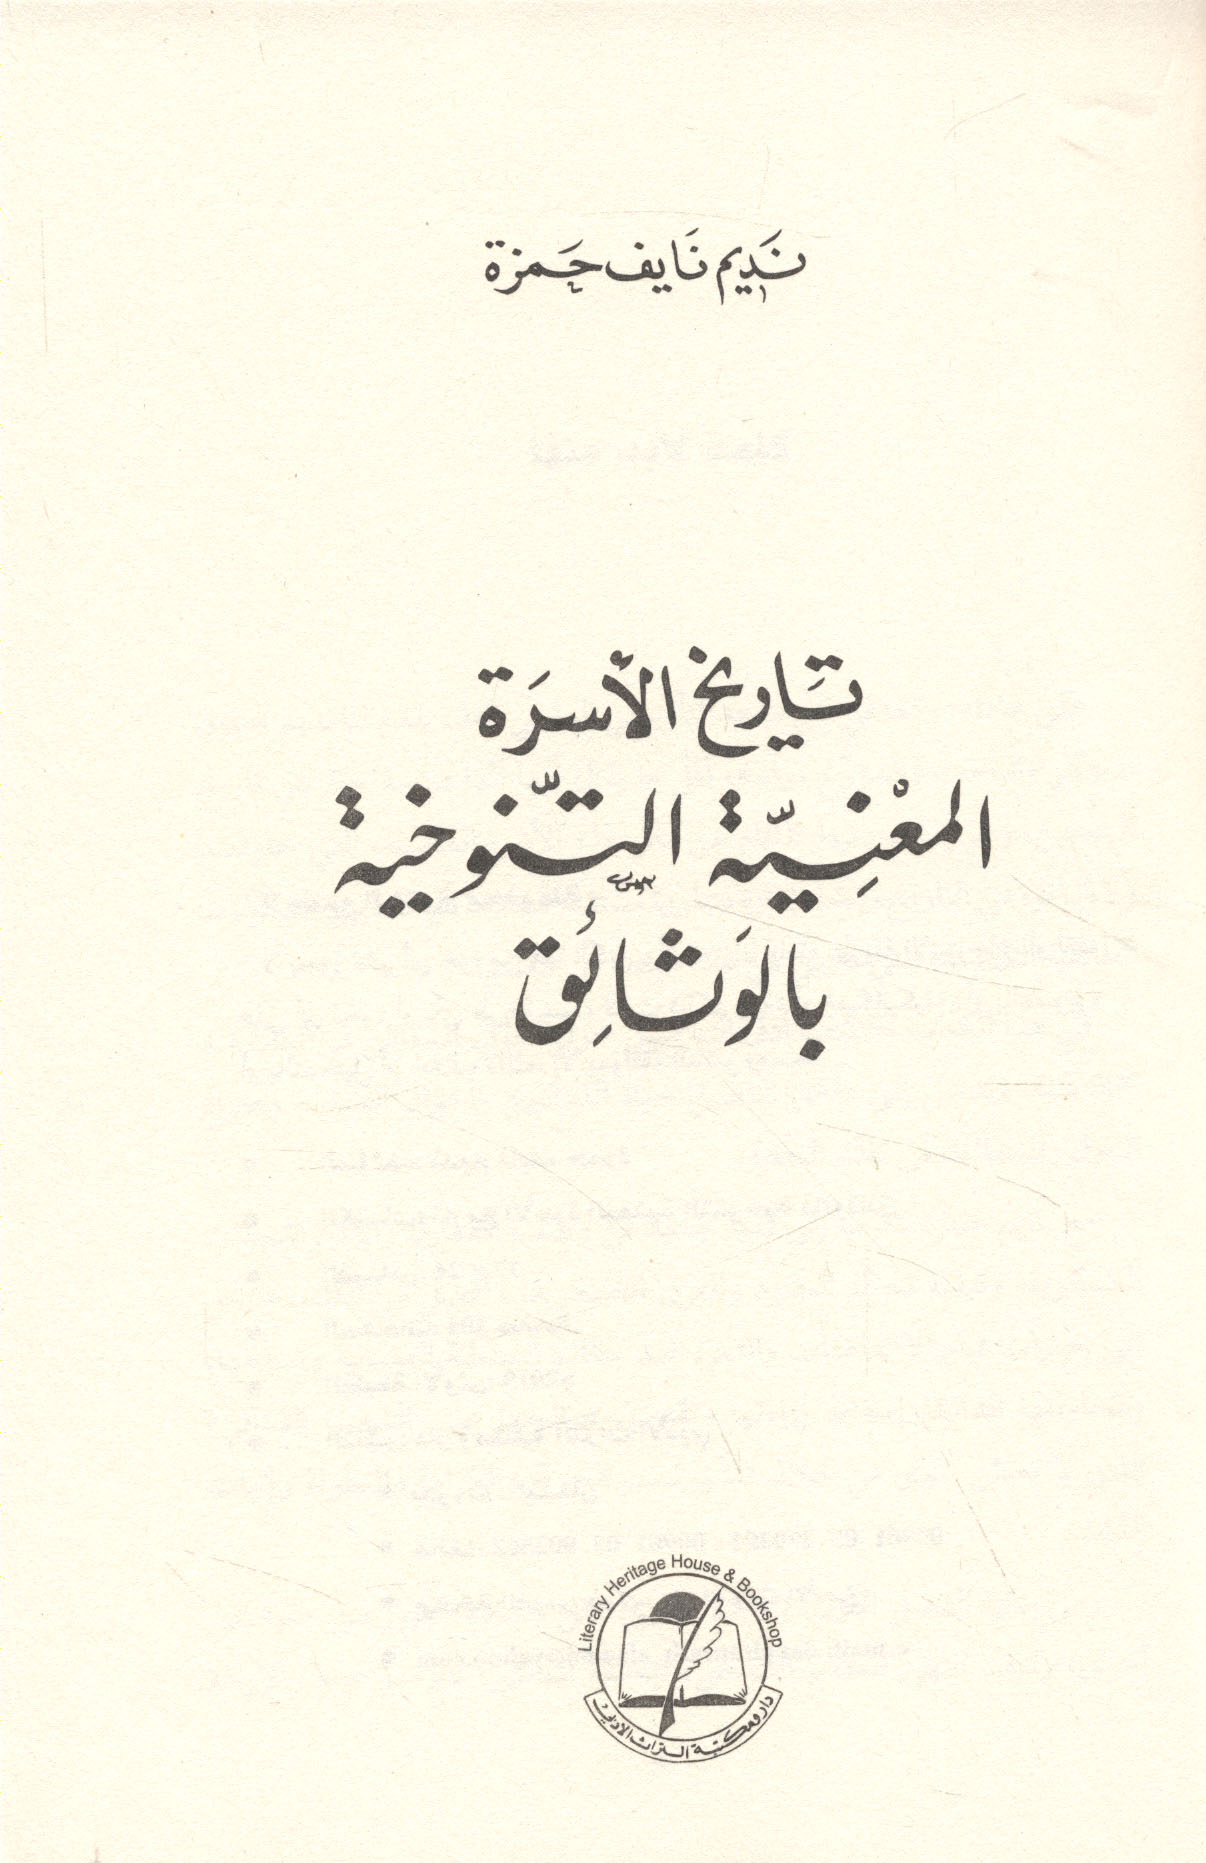 نَديم نَايف حَمزة
تَاريخ الأسرَة
المعْنِيّة التّنوخية
بالوَثائِق
Literary Heritage House & Bookshop
دار ومكتبة التراث الأدبي